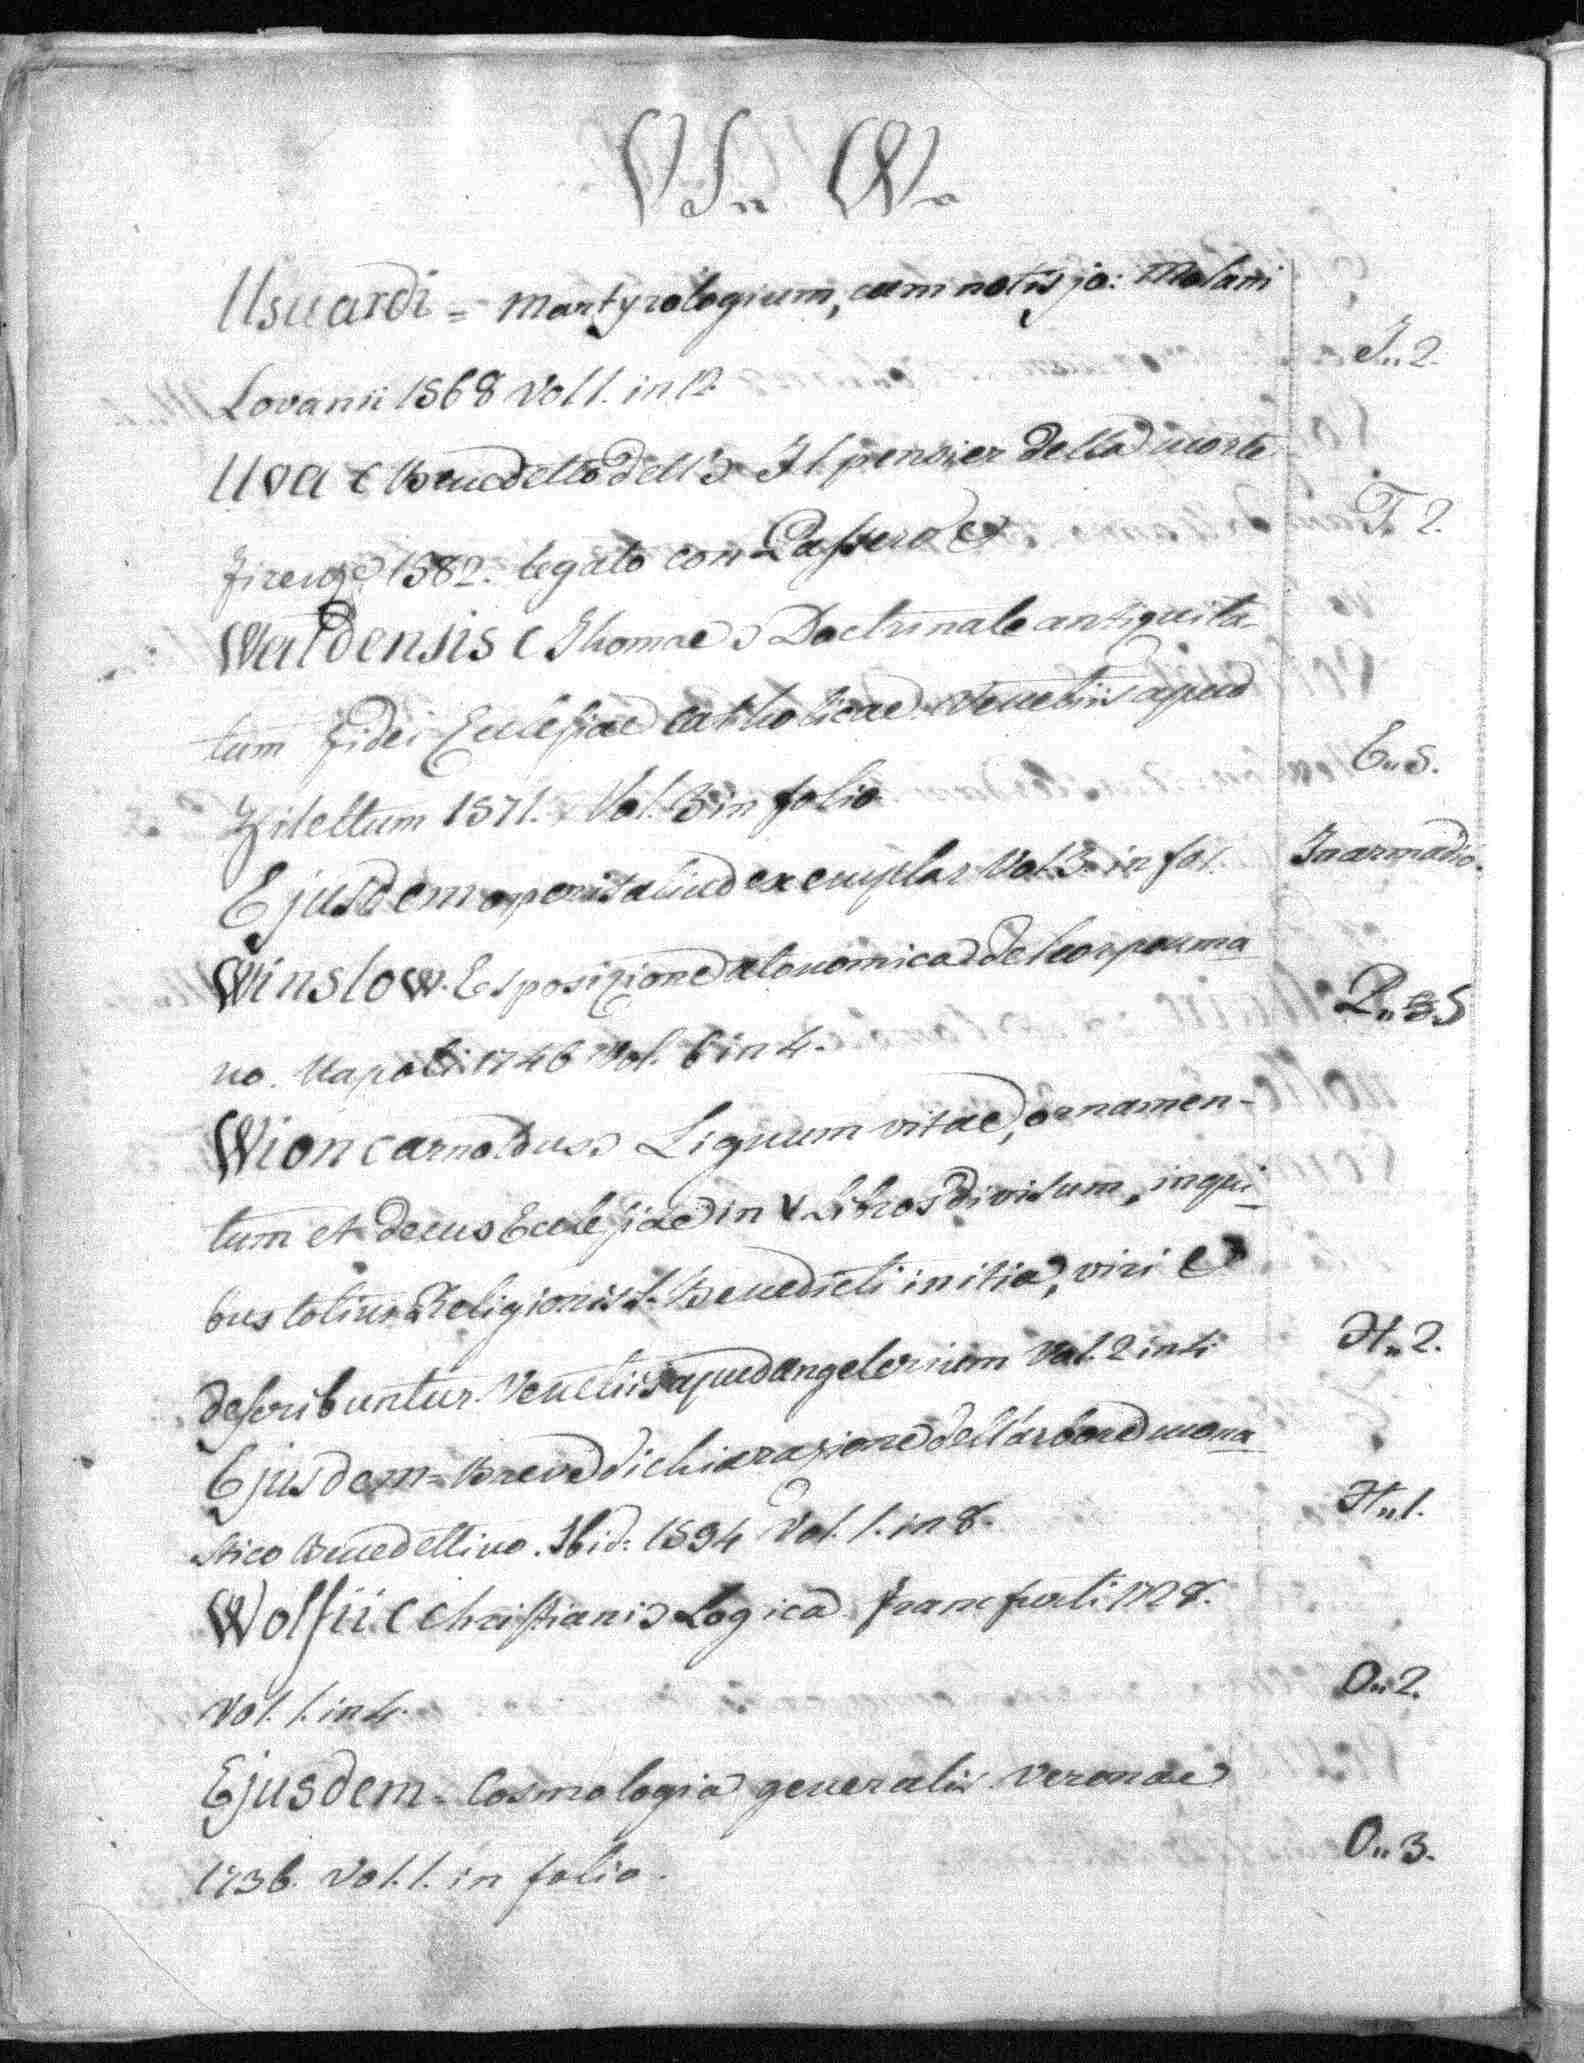 VS.. W..
Usuardi = Martyrologium, cum notis jo: Molani
Lovanii 1568 Vol 1. in 12. I..2.
Uva (Benedetto dell') Il pensier della morte
Firenze 1582. legato con Passero & T. 2.
Waldensis (Thomae) Doctrinale antiquita-
tum fidei Ecclesiae catholicae. Venetiis apud
Zilettum 1571. Vol. 3 in folio E..5.
Ejusdem operis aliud exemplar Vol. 3. in fol. In armadio.
Winslow. Esposizione atonomica del corpo uma
no. Napoli 1746 Vol. 6 in 4. P..5
Wion (Arnoldus) Lignum vitae, ornamen-
tum et decus Ecclesiae in V Libros divisum, in qui
bus totius Religionis S. Benedicti initia, viri &
describuntur. Venetiis apud Angelerium Vol. 2 in 4 H..2.
Ejusdem = Breve dichiarazione dell'arbore mona
stico Benedettino. Ibid: 1594 Vol. 1. in 8. H..1.
Wolfii (Christiani) Logica. Francfurti 1728.
Vol. 1. in 4. O..2.
Ejusdem = Cosmologia generalis Veronae
1736. Vol. 1. in folio. O..3.